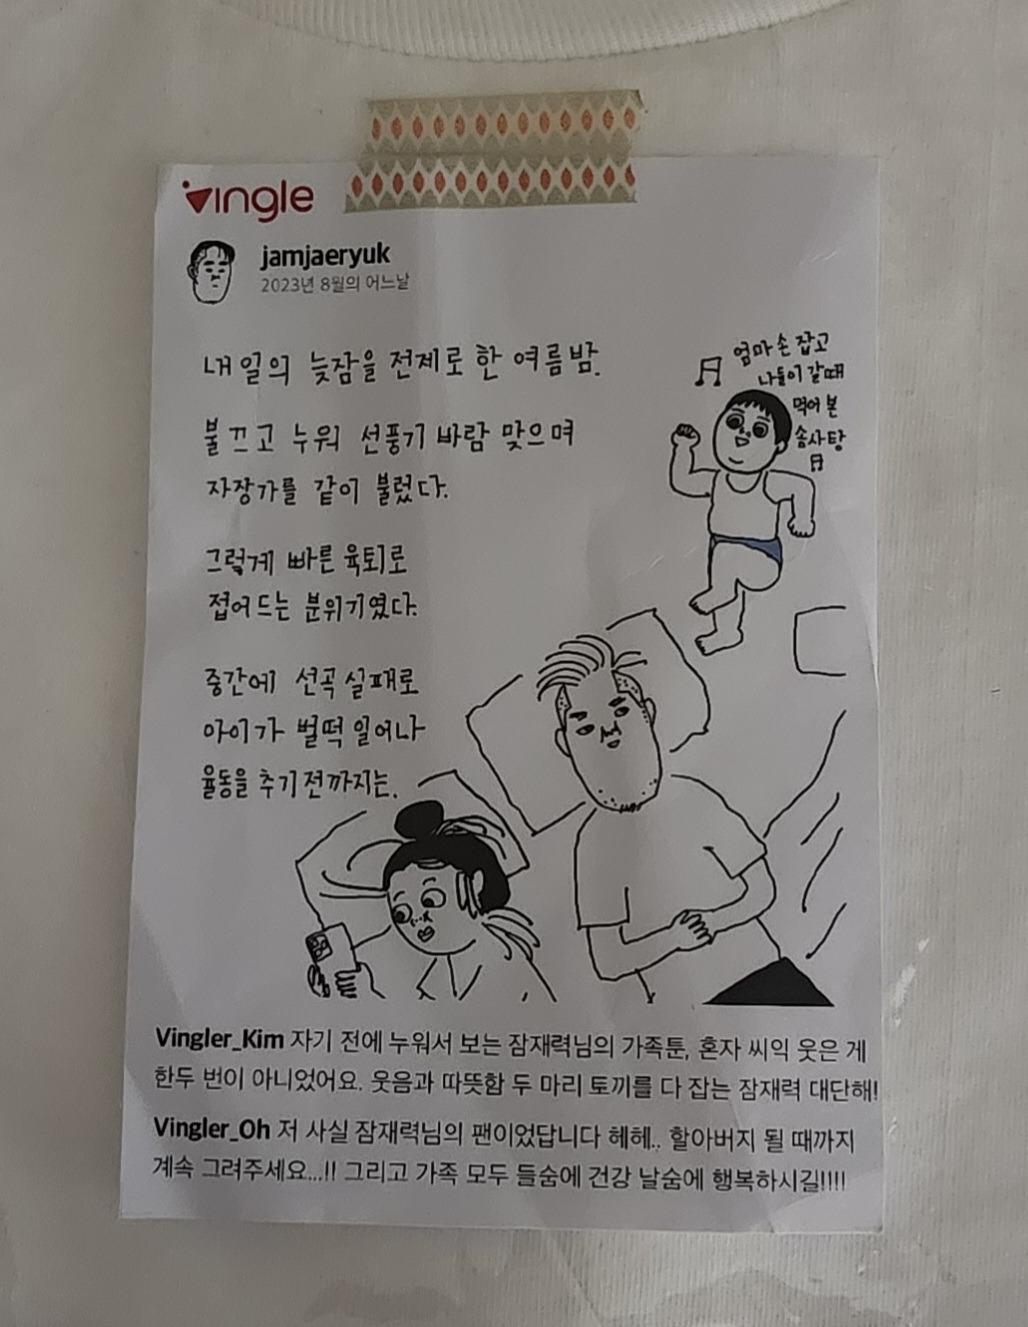 vingle
jamjaeryuk
2023년 8월의 어느날
내일의 늦잠을 전제로 한 여름밤.
불 끄고 누워 선풍기 바람 맞으며
자장가를 같이 불렀다.
그렇게 빠른 육퇴로
접어드는 분위기였다.
중간에 선곡 실패로
아이가 벌떡 일어나
율동을 추기 전까지는.
엄마 손 잡고
나들이 갈 때
먹어 본
솜사탕
Vingler_Kim 자기 전에 누워서 보는 잠재력님의 가족툰, 혼자 씨익 웃은 게
한두 번이 아니었어요. 웃음과 따뜻함 두 마리 토끼를 다 잡는 잠재력 대단해!
Vingler_Oh 저 사실 잠재력님의 팬이었답니다 헤헤.. 할아버지 될 때까지
계속 그려주세요...!! 그리고 가족 모두 들숨에 건강 날숨에 행복하시길!!!!